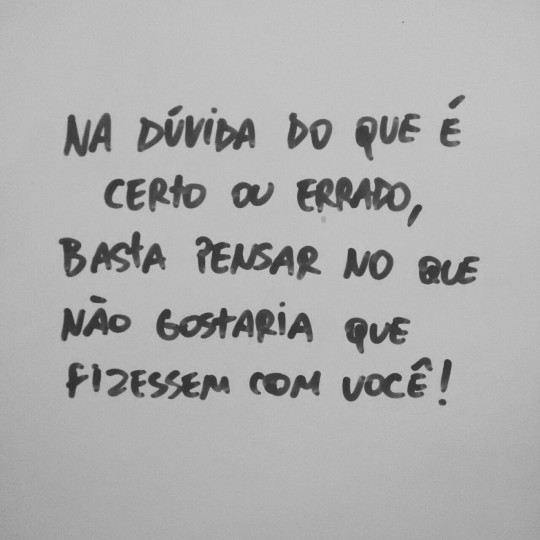 NA DÚVIDA DO QUE É
CERTO OU ERRADO,
BASTA PENSAR NO QUE
NÃO GOSTARIA QUE
FIZESSEM COM VOCÊ!